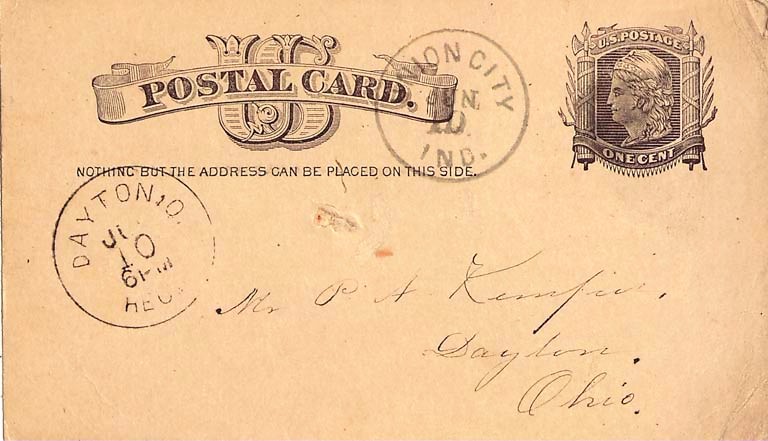 US
POSTAL CARD.
U.S. POSTAGE
ONE CENT
NOTHING BUT THE ADDRESS CAN BE PLACED ON THIS SIDE.
ION CITY
10
IND.
DAYTON, O.
10
6 PM
REC
Mr P. A.
Dayton.
Ohio.